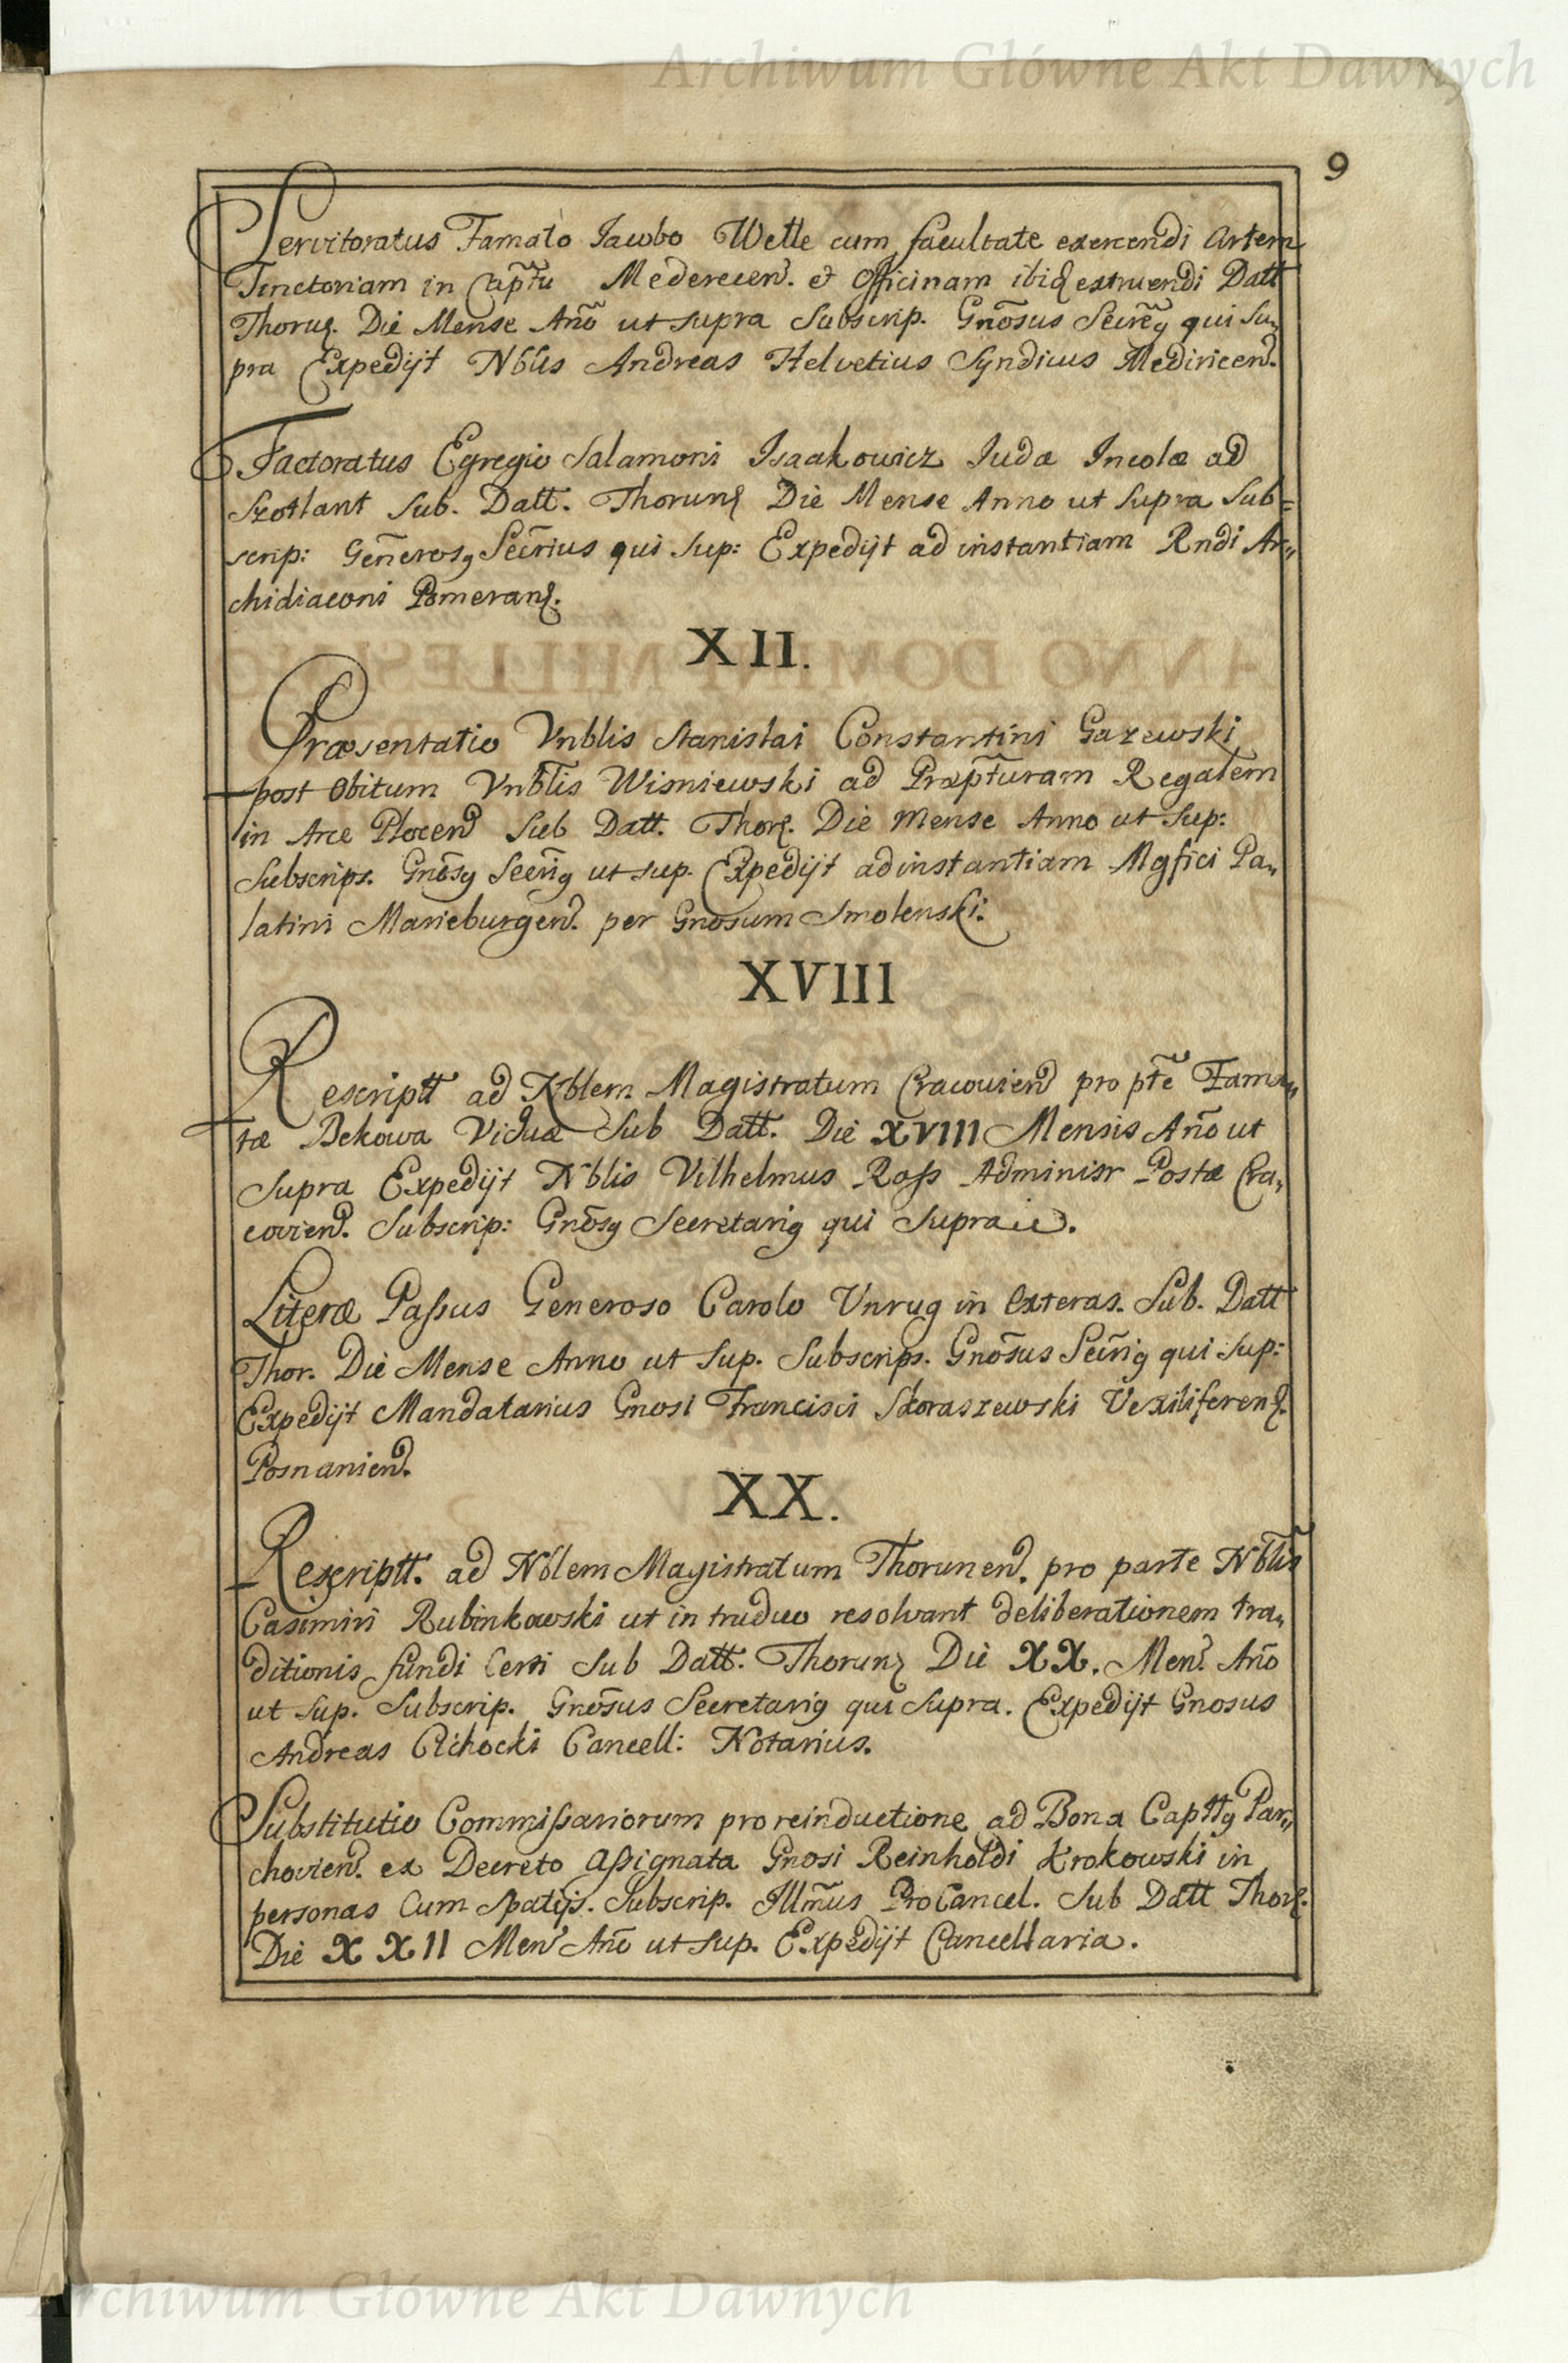 Archiwum Główne Akt Dawnych
9
Servitoratus Famato Iacobo Welle cum facultate exercendi Artem
Tinctoriam in Capt̃u Mederecen. et Officinam ibiq extruendi Datt
Thorun. Die Mense Año ut supra Subscrip. Gnõsus Secre͂g qui Su„
pra Expedijt Nblis Andreas Helvetius Syndicus Mediricen.
Factoratus Egregio Salamoni Isaakowicz Iudæ Incolæ ad
Szotlant Sub. Datt. Thorun Die Mense Anno ut Supra Sub=
scrip: Generosg Secr̃ius qui Sup: Expedijt ad instantiam Rndi Ar„
chidiaconi Pomeran.
XII.
Præsentatio Vnblis Stanislai Constantini Gazewski
post Obitum Vnblis Wisniewski ad Præpt̃uram Regalem
in Arce Plocen Sub Datt. Thor. Die Mense Anno ut Sup:
Subscrips. Gnõsg Secrĩg ut sup. Expedijt ad instantiam Mgfici Pa„
latini Marieburgen. per Gnosum Smolenski.
XVIII
Rescriptt ad Nblem Magistratum Cracovien pro pt̃e Fama„
tæ Bekowa Viduæ Sub Datt. Die XVIII Mensis Año ut
Supra Expedijt Nblis Vilhelmus Ross Administr Postæ Cra„
covien. Subscrip: Gnõsg Secretarig qui Supra
Literæ Passus Generoso Carolo Vnrug in Exteras. Sub. Datt
Thor. Die Mense Anno ut Sup. Subscrips. Gnõsus Secr̃ig qui Sup:
Expedijt Mandatarius Gnosi Francisci Skoraszewski Vexiliferen.
Posnanien.
XX.
Rescriptt. ad Nblem Magistratum Thorunen. pro parte Nblis
Casimiri Rubinkowski ut in triduo resolvant deliberationem tra„
ditionis fundi Certi Sub Datt. Thorun Die XX. Men. Año
ut Sup. Subscrip. Gnõsus Secretarig qui Supra. Expedijt Gnosus
Andreas Cichocki Cancell: Notarius.
Substitutio Commissariorum pro reinductione ad Bona Capttg Par„
chovien. ex Decreto Assignata Gnosi Reinholdi Krokowski in
personas Cum Spatijs. Subscrip. Illm̃us ProCancel. Sub Datt Thor.
Die XXII Men Año ut Sup. Expedijt Cancellaria.
Archiwum Główne Akt Dawnych